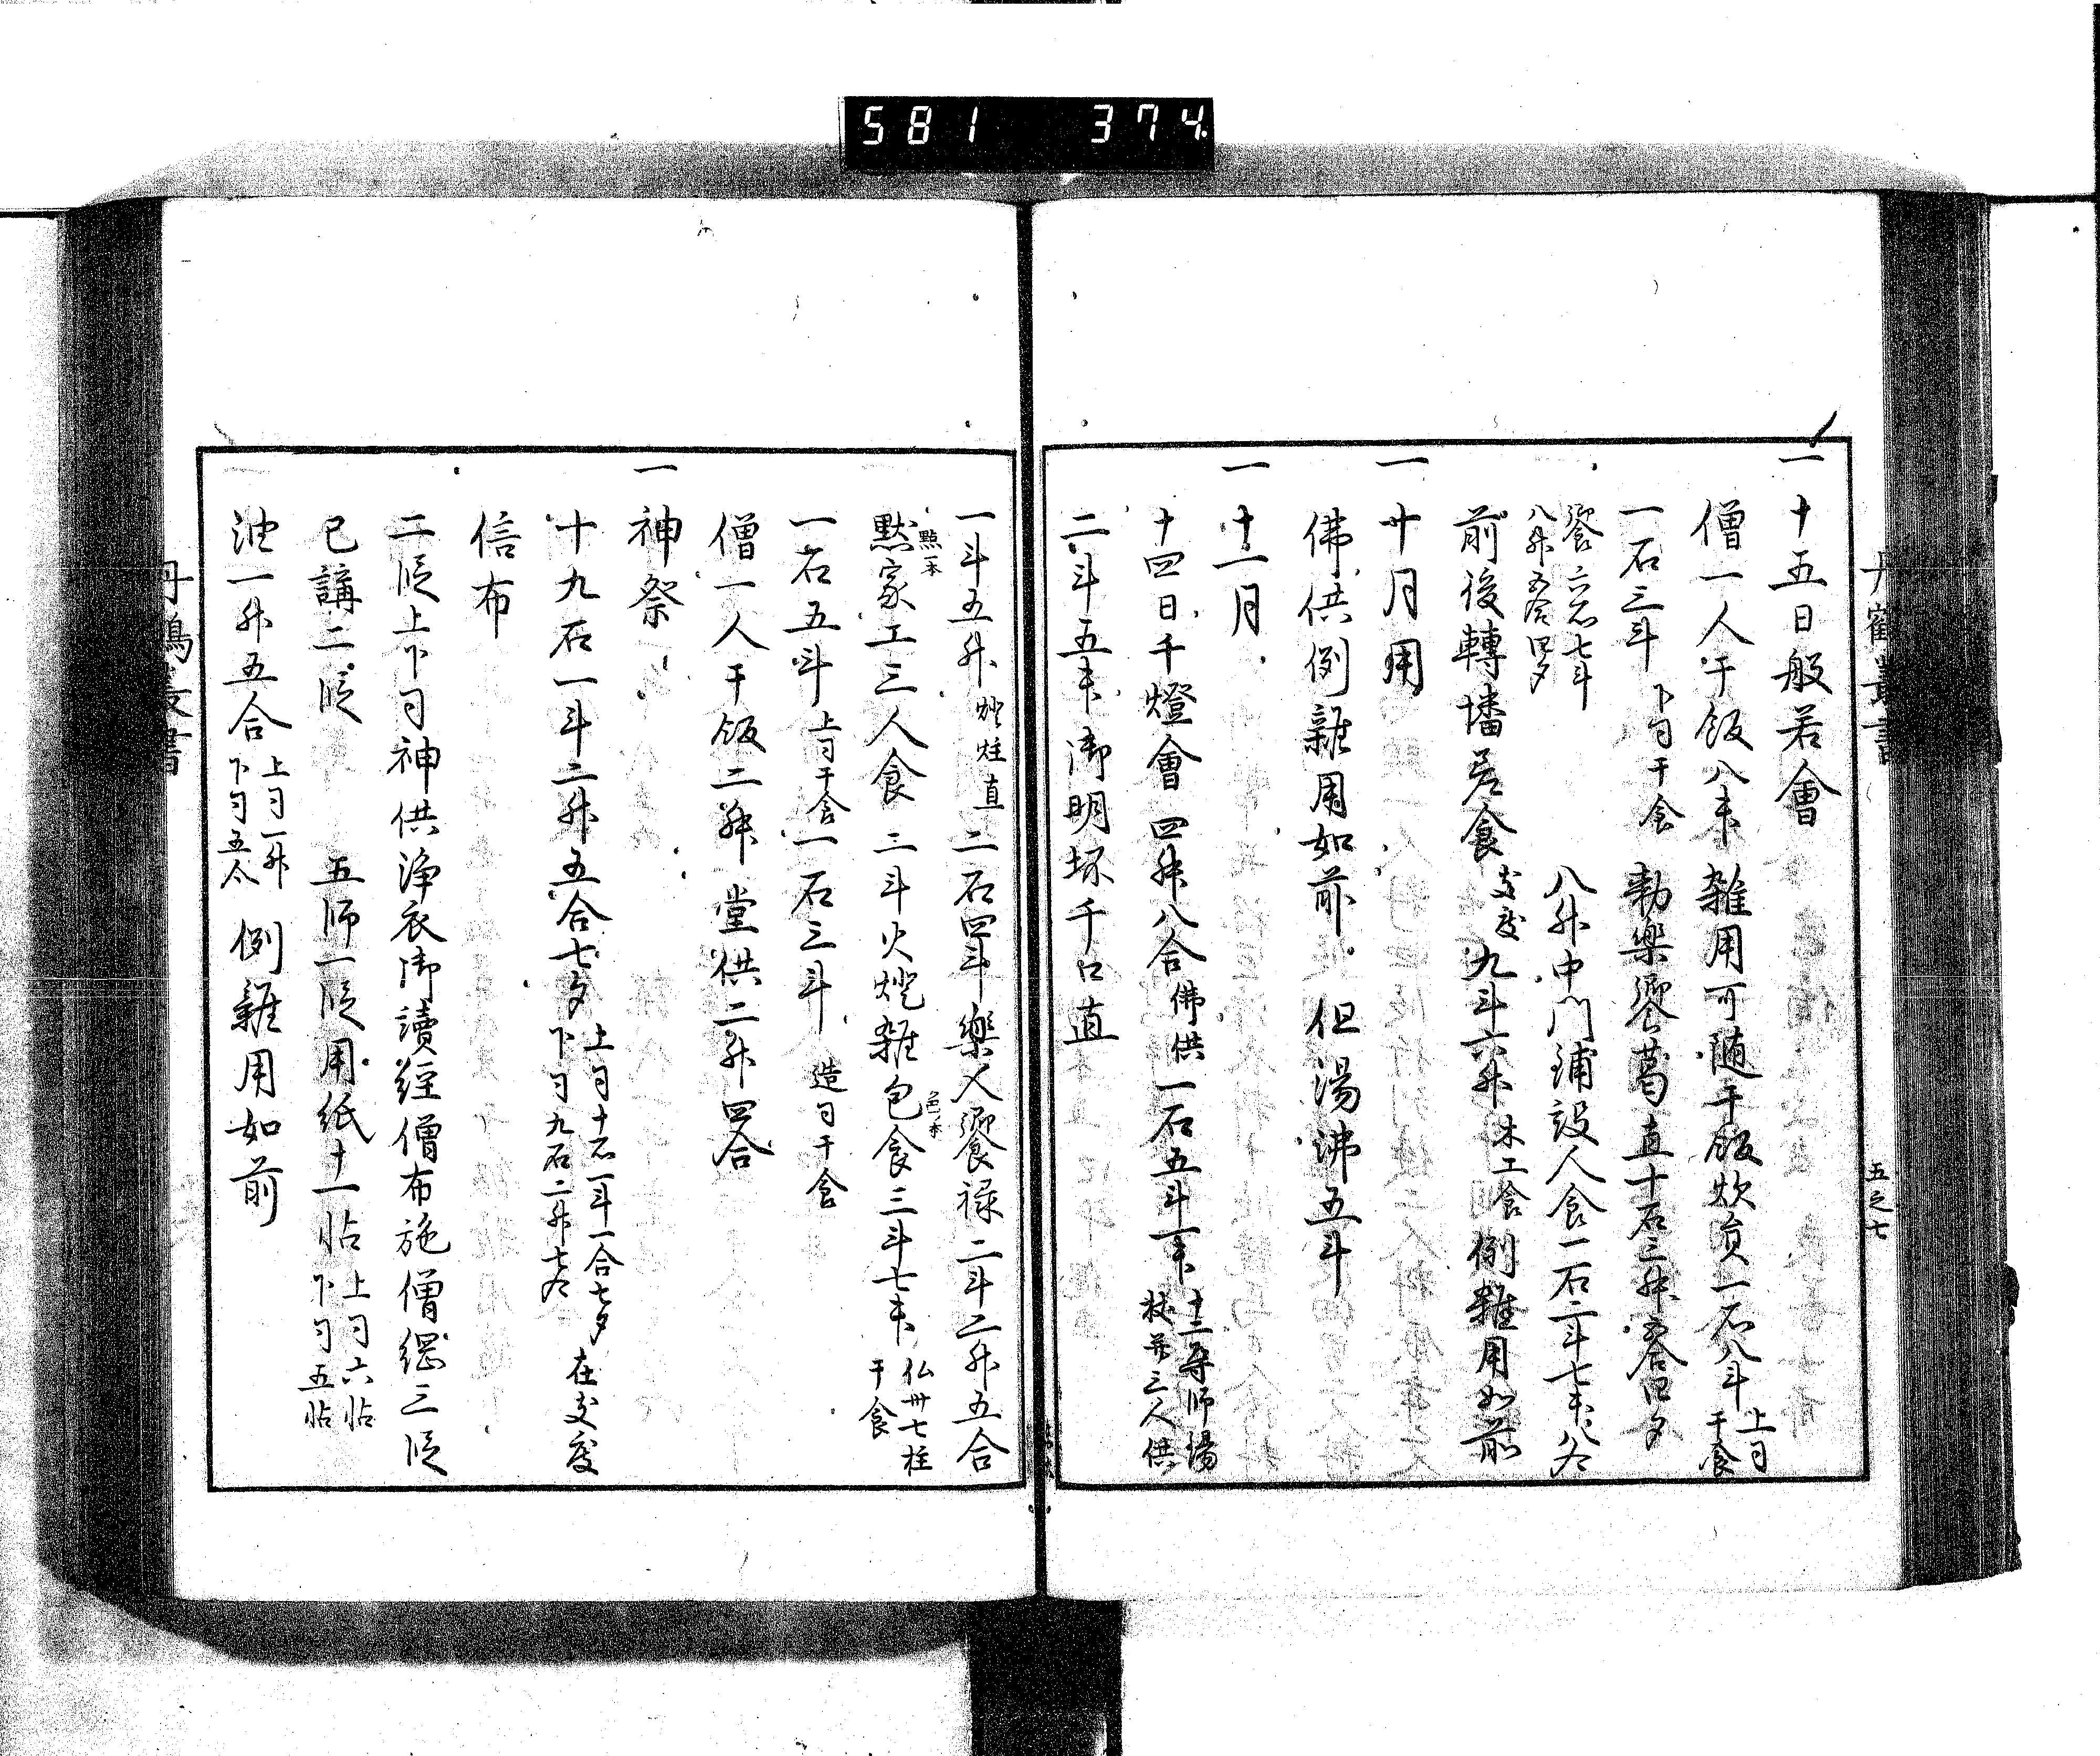 581 374
丹鶴叢書
五之七
一十五日般若會
僧一人干飯八升 雑用可随干飯炊員一石八斗 上司干食
一石三斗 下司干食 勅樂饗葛直十石三升六合四夕
饗六石七斗八升五合四夕 八升中門鋪設人食一石二斗七升八合
前後轉墦居食 支度 九斗六升 木工食 例雜用如前
一十月用
佛供例雜用如前 但湯沸五斗
一十一月
十四日千燈會 四升八合 佛供 一石五斗一升 十二導師場 三人供
二斗五升御明坏千口直
一斗五升 燈炷直 二石四斗樂人饗禄二斗二升五合
黙家工三人食 二斗火燈雜包食三斗七升 仏卅七柱干食
點一本
色一本
一石五斗 上司干食 一石三斗 造司干食
僧一人干飯二升 堂供二升四合
一神祭
十九石一斗二升五合七夕 上司十石一斗一合七夕 下司九石二升七合 在支度
信布
二段上下司神供浄衣御讀經僧布施僧綱三段
已講二段 五師一段用紙十一帖 上司六帖 下司五帖
油一升五合 上司一升 下司五合 例雜用如前
丹鶴叢書